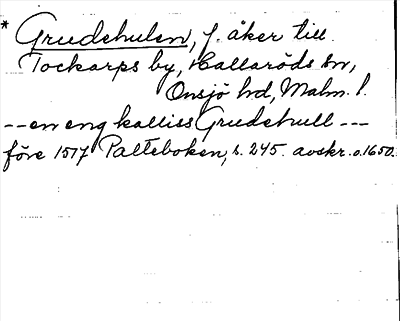 * Grudehulen, f. åker till
Tockarps by, Hallaröds sn,
Onsjö hd, Malm. l.
-- en eng kalliss Grudehull ---
före 1517 Palteboken, s. 245. avskr. o. 1650.